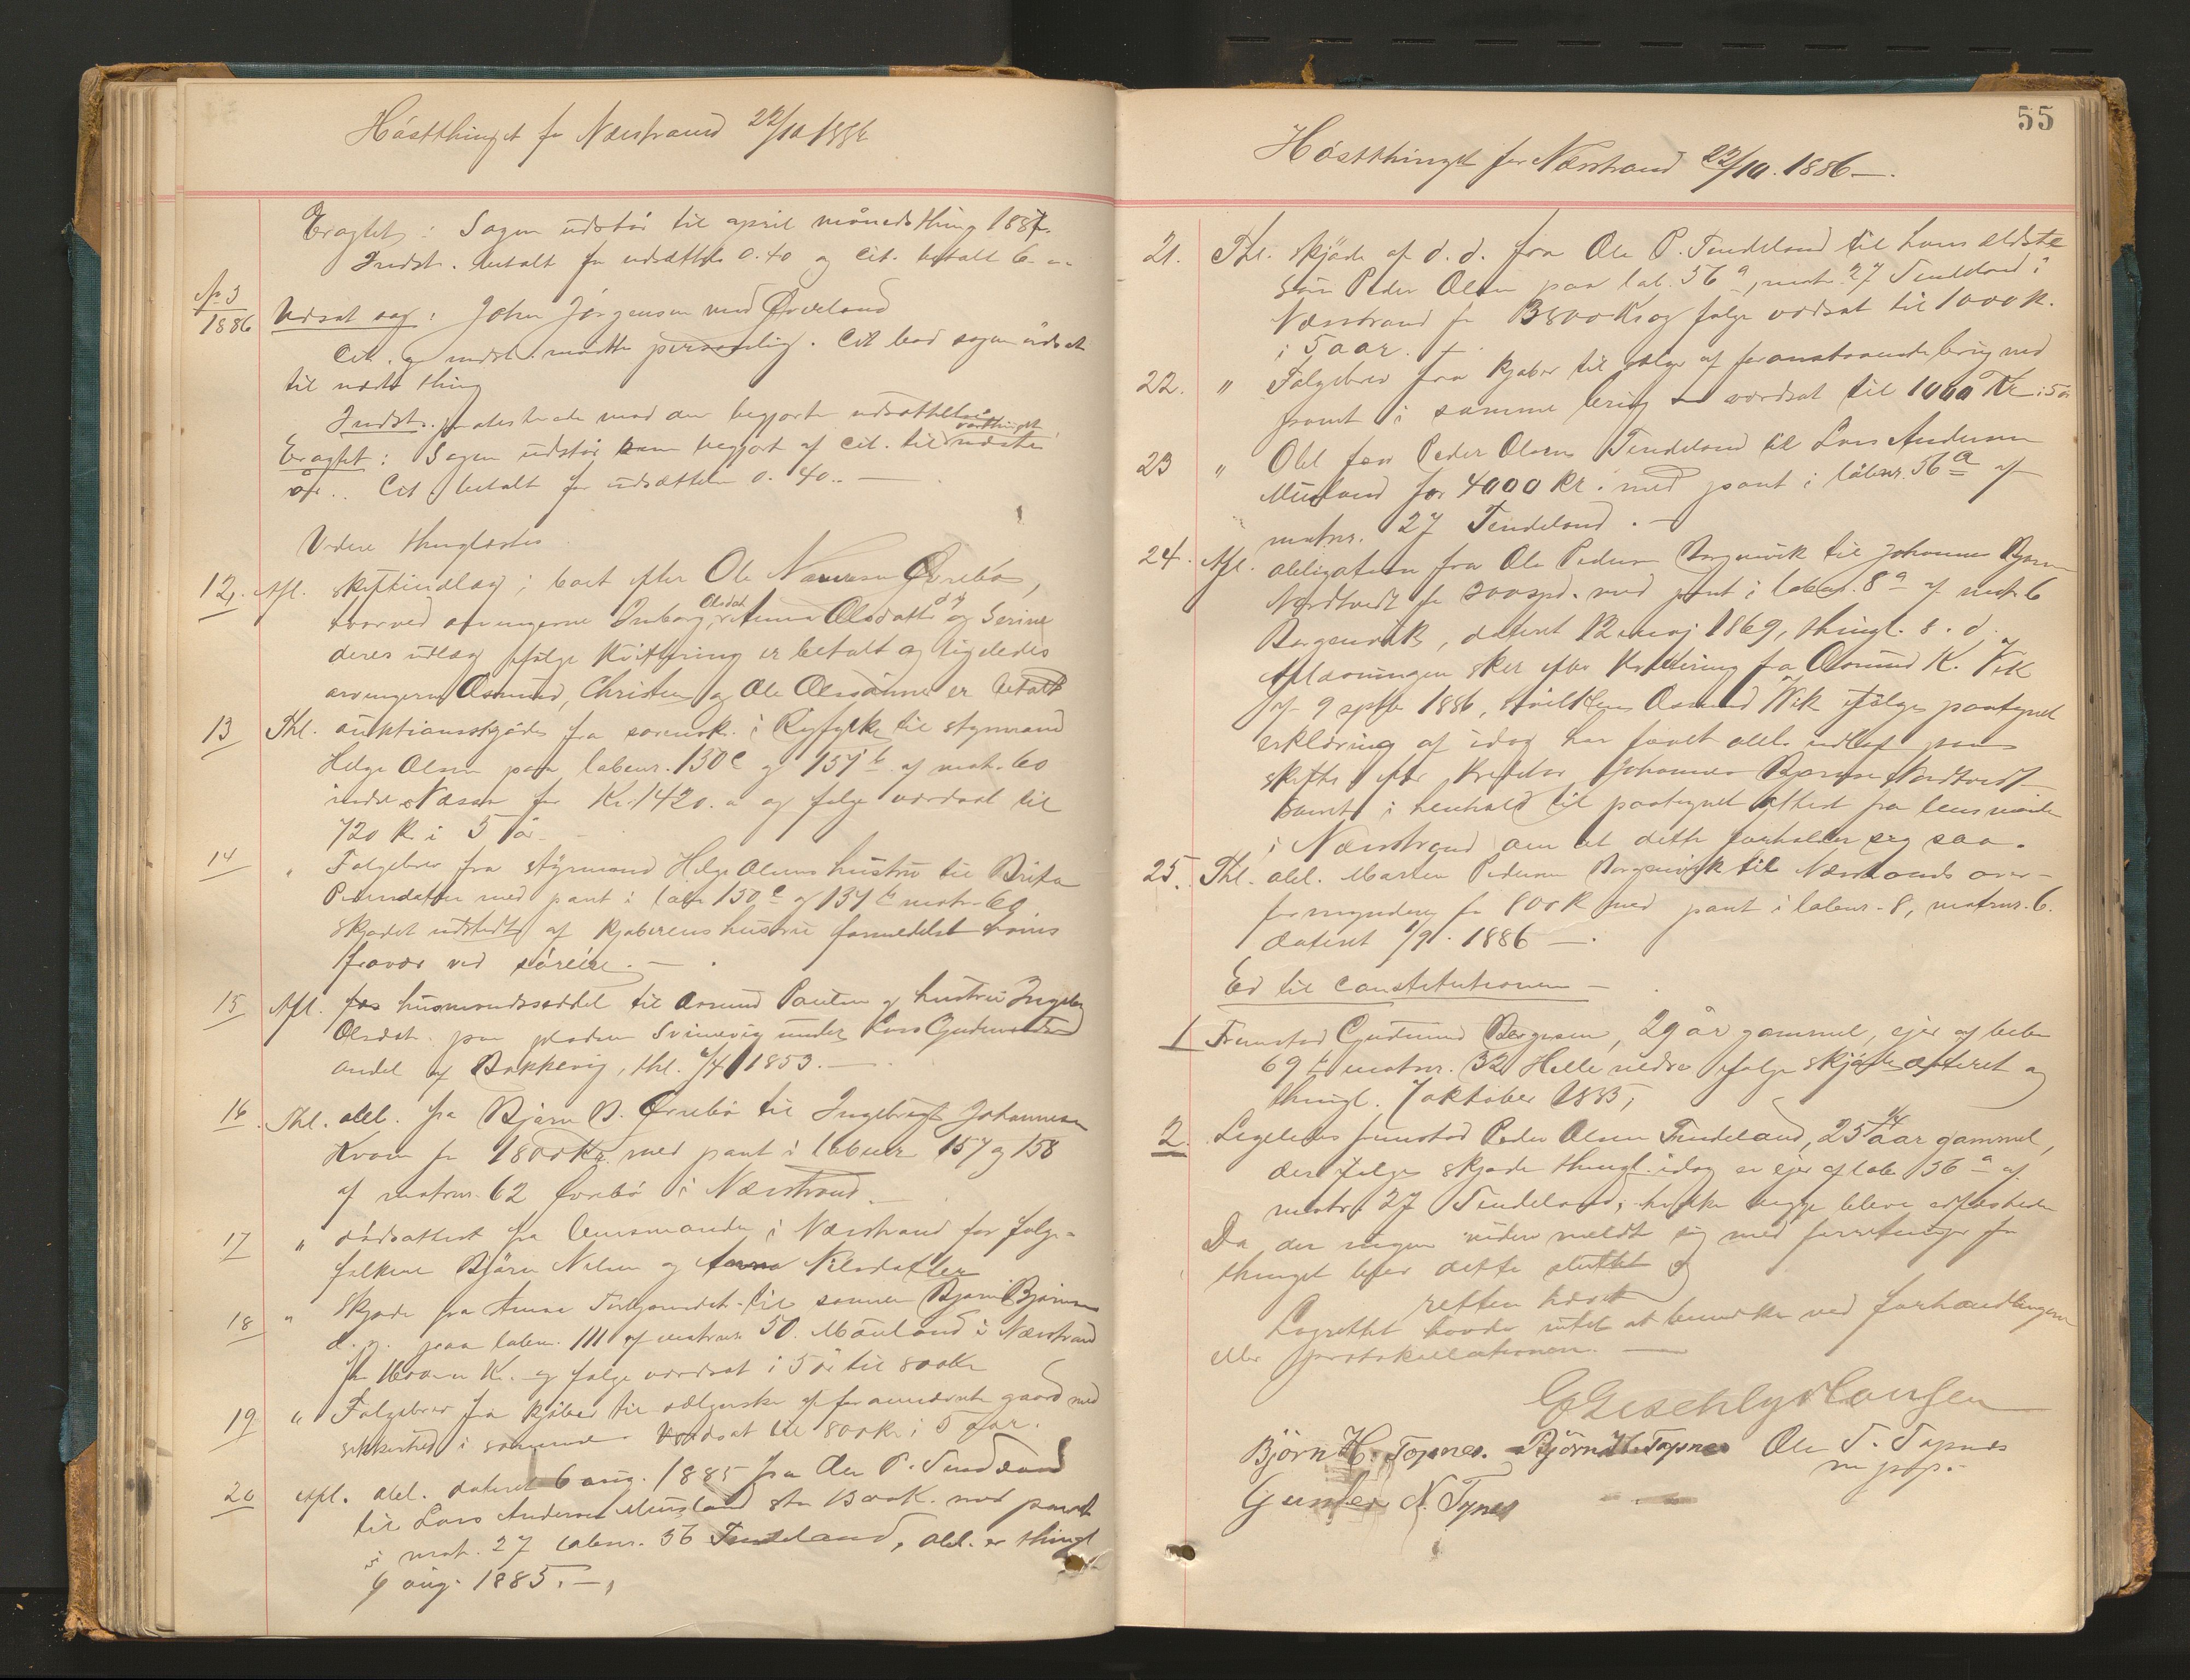 Høstthinget for Nærstrand 22/10 1886
Eragtet: Sagen udstår til april månedsthing 1887.
Indst. betalt for udsættelse 0.40 og Cit. betalt 6.
No 3
1886
Udsat sag: John Jørgensen mod Øveland
Cit. og indst. mødte personlig. Cit bad sagen udsat
til næste thing
Indst. protesterede mod den begjærte udsættelse
Eragtet: Sagen udstår som begjært af Cit. til næste vårthinget
år. Cit. betalt for udsættelse 0.40.. —
Videre thinglæstes
12. Afl. skifteudlæg i boet efter Ole Ørebø,
hvorved arvingerne Olsdat., Anna Olsdatter og Serine
deres udlæg ifølge kvittering er betalt og ligeledes
arvingerne Osmund, Christen og Ole Olssønner er betalt
13 Thl. auktionsskjøde fra sorensk. i Ryfylke til styrmand
Helge Olsen paa løbenr. 130c og 137b af matr. 60
indre Næsse for Kr. 1420. og følge værdsat til
720 K i 5 år
14 " Følgebrev fra styrmand Helge Olsens hustru til Brita
Pedersdatter med pant i løb 130c og 137b matr. 60
Skjødet udstedt af kjøberens hustru formedelst hans
fravær ved søreise. — .
15 Afl. husmandsseddel til Osmund Paulsen og hustru Ingeb.
Olsdat. paa pladsen Svinevig under Lars Gudmundsens
andel af Bokkevig, thl. 1853. —
16. Thl. obl. fra Bjørn B. Ørebø til Ingebregt Johannesen
Kvam for 1800 Kr. med pant i løbenr 157 og 158
af matrnr. 62 Ørebø i Nærstrand. —
17 " dødsattest fra lensmanden i Nærstrand for følge-
folkene Bjørn Nilsen og Anna Nilsdatter
18 " Skjøde fra Anna til sønnen Bjørn Bjørnsen
d. y. paa løben. 111 af matrnr. 50. Mauland i Nærstrand
for 1600 K. og følge værdsat i 5 år til 800 Kr
19 " Følgebrev fra kjøber til sælgerske af forannævnte gaard med
sikkerhed i samme værdsat til 800 kr i 5 aar.
20 Afl. obl. dateret 6 aug. 1885 fra Ole P. Tendeland
til Lars Andersen Musland stor 1300 K. med pant
i mat. 27 løbenr. 56 Tendeland, obl. er thingl
6 aug. 1885. —
55
Høstthinget for Nærstrand 22/10. 1886 —.
21. Thl. skjøde af d. d. fra Ole P. Tendeland til hans ældste
søn Peder Olsen paa løb. 56a, matr. 27 Tendeland i
Nærstrand for 3800 Kr og følge værdsat til 1000 K.
i 5 aar. —
22. " Følgebrev fra kjøber til sælger af foranstaaende brug med
pant i samme brug værdsat til 1000 Kr i 5 år
23 " Obl fra Peder Olsen Tendeland til Lars Andersen
Musland for 4000 Kr. med pant i løbenr. 56a af
matrnr. 27 Tendeland. —
24. Afl. obligation fra Ole Pedersen Borgenvik til Johannes Bjørnsen
Nordtvedt for 300 spd. med pant i løbenr. 8a af matr. 6
Borgenvik, dateret 12 maj 1869, thingl. s. d.
Aflæsningen sker efter kvittering fra Osmund K. Vik
af 9 septbr 1886, hvilken Osmund Vik ifølge paategnet
erklæring af idag har faaet obl. udlagt paa
skifte efter kreditor Johannes Bjørnsen Nordtvedt
samt i henhold til paategnet attest fra lensmanden
i Nærstrand om at dette forholder sig saa.
25. Thl. obl. Morten Pedersen Borgenvik til Nærstrands over-
formynderi for 800 K med pant i løbenr. 8, matrnr. 6.
dateret 1/9. 1886 —.
Ed til Constitutionen —
1 Fremstod Gudmund Børgesen, 29 år gammel, ejer af løbe
69 b matrnr. 32 Helle nedre ifølge skjøde dateret og
thingl. 7 oktober 1885,
2. Ligeledes fremstod Peder Olsen Tendeland, 25 1/4 aar gammel,
der ifølge skjøde thingl. idag er ejer af løb 56 a af
matr. 27 Tendeland, hvilke begge bleve edfæstede
Da der ingen videre meldte sig med forretninger for
thinget blev dette sluttet og
retten hævet
Lagrettet havde intet at bemærke ved forhandlingen
eller protokollationen. —
Bjørn H. Topnes. Bjørn H. Topnes Ole T. Topnes
m p p.
Gunder N. Topnes